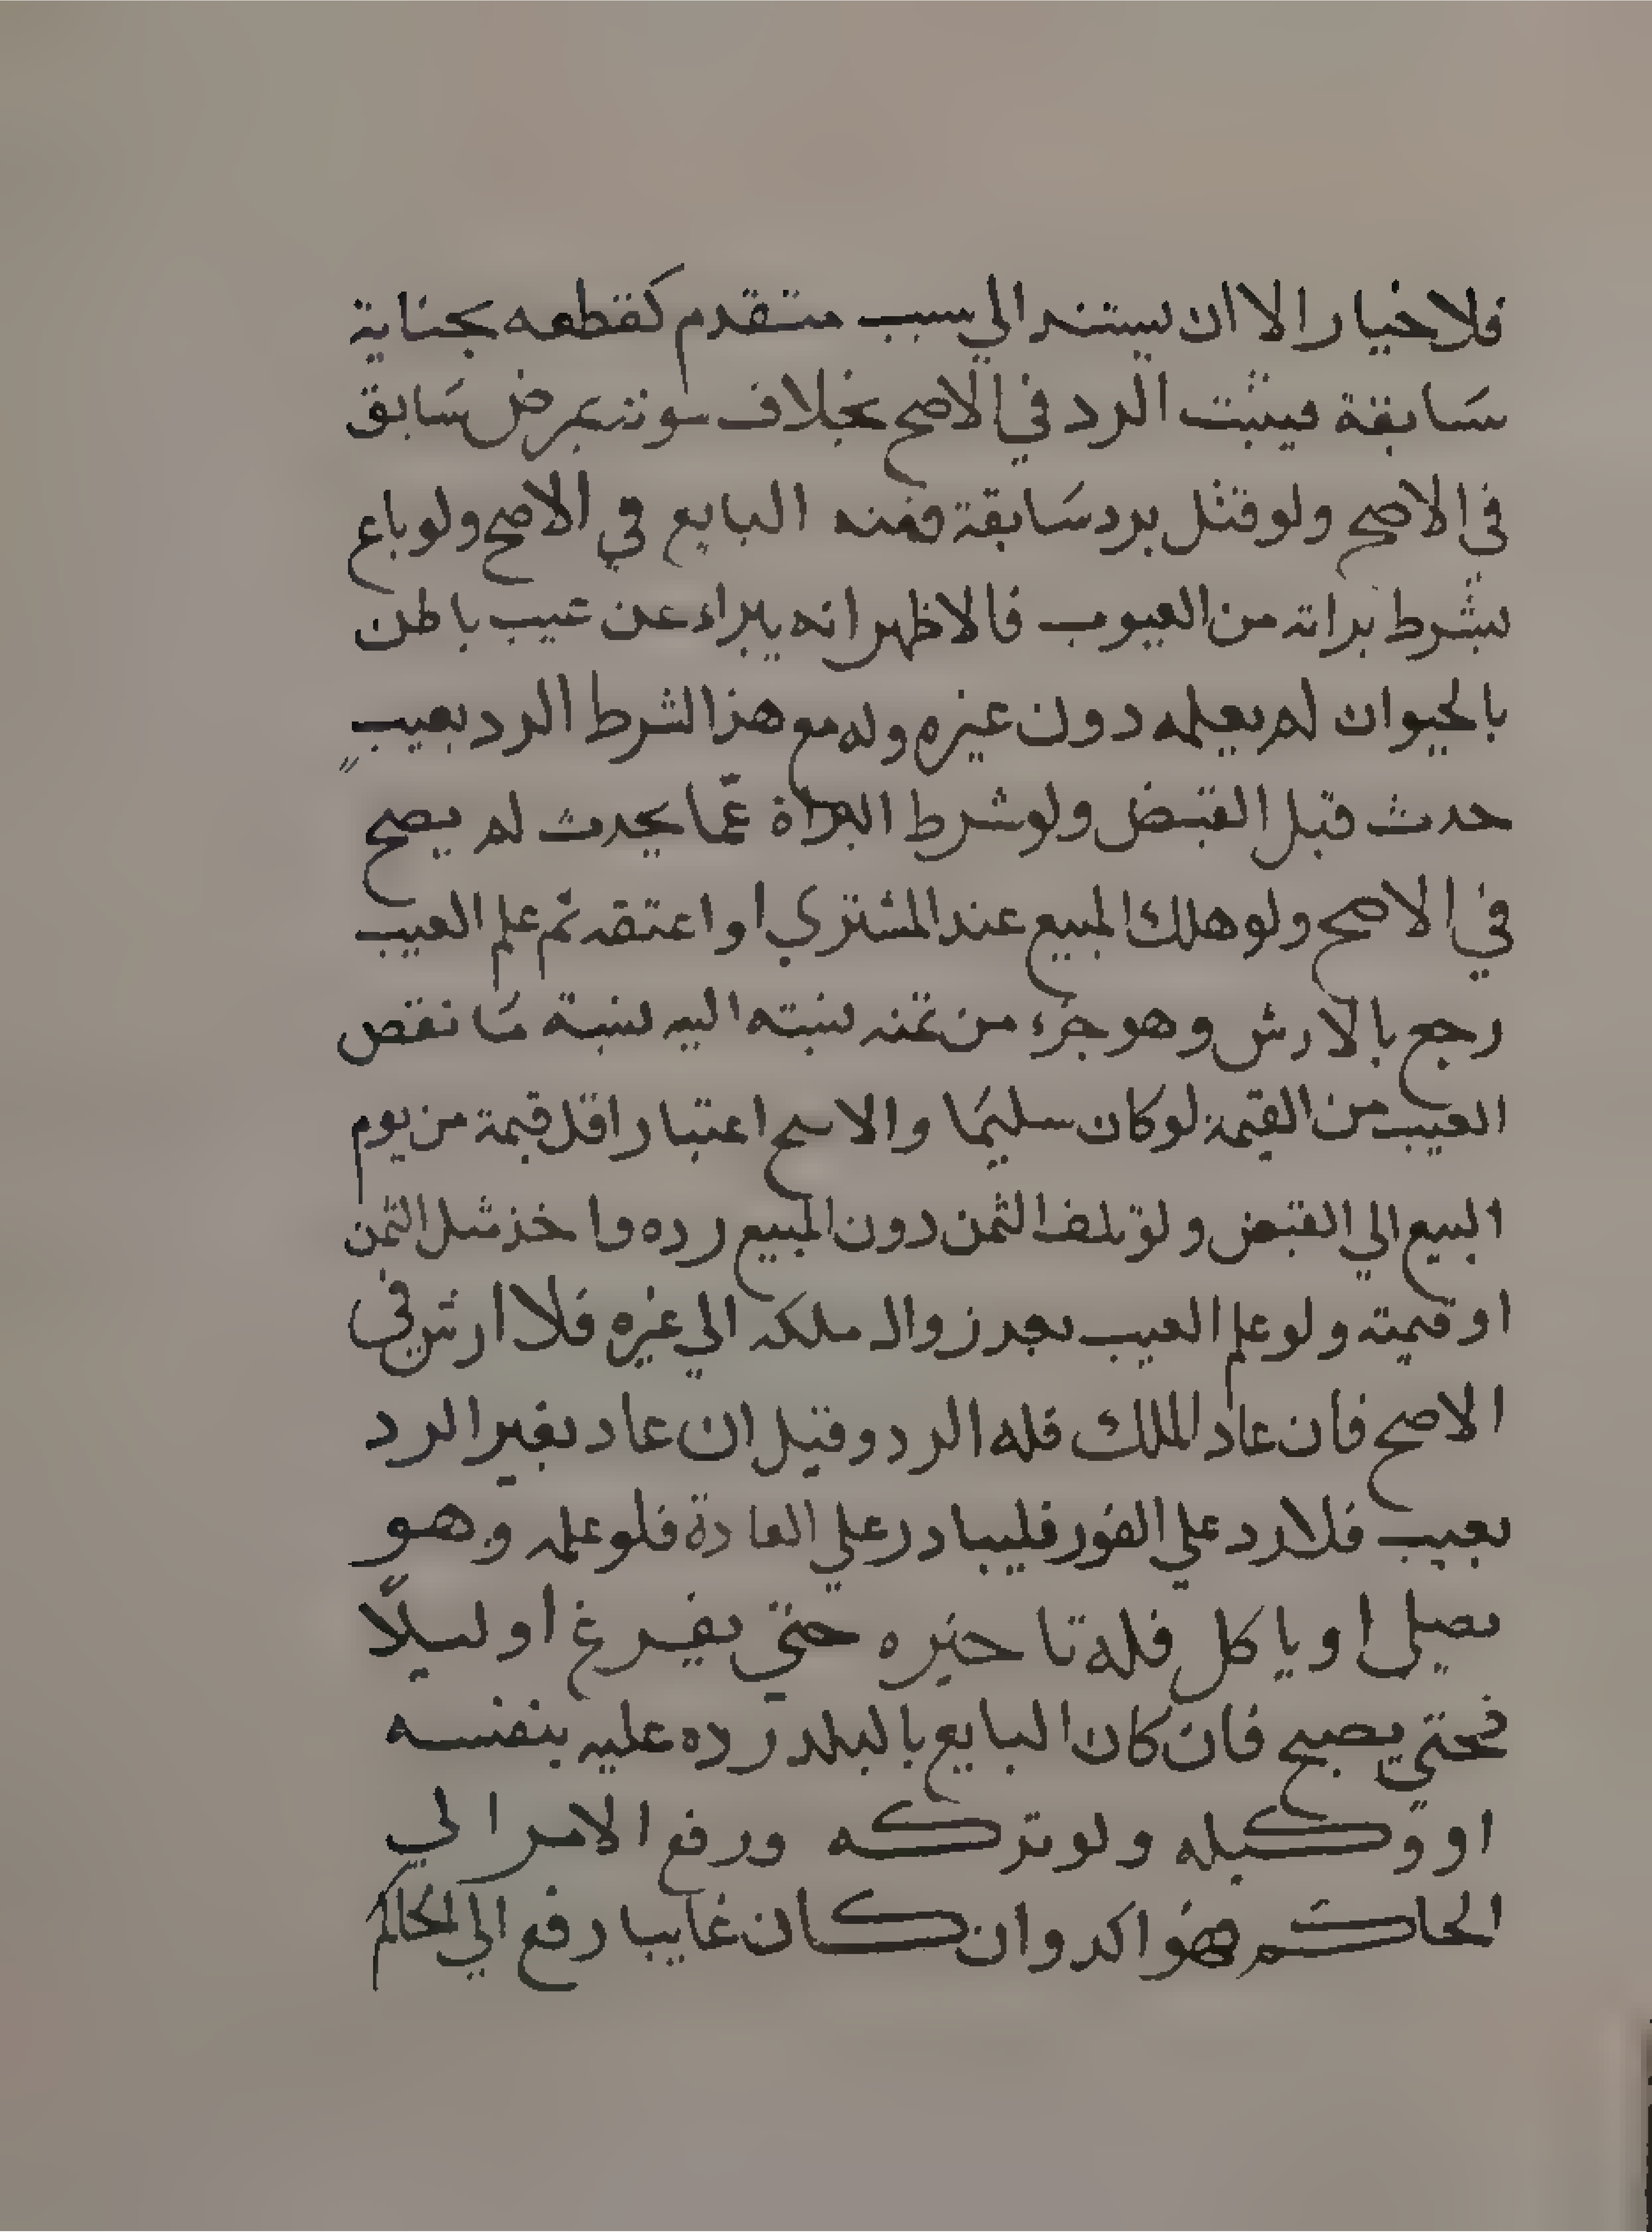 فلا خيار الا ان يستند الي سبب متقدم كقطعه بجناية
سابقة فيثبت الرد في الاصح بخلاف موته بمرض سابق
في الاصح ولو قتل برد سابقة ضمنه البايع في الاصح ولو باع
بشرط براته من العيوب فالاظهر انه يبراء عن عيب باطن
بالحيوان لم يعلمه دون غيره وله مع هذا الشرط الرد بعيب
حدث قبل القبض ولو شرط البراة عما يحدث لم يصح
في الاصح ولو هلك المبيع عند المشتري او اعتقه ثم علم العيب
رجع بالارش وهو جزء من ثمنه نسبته اليه نسبة ما نقص
العيب من القيمة لو كان سليما والاصح اعتبار اقل قيمة من يوم
البيع الي القبض ولو تلف الثمن دون المبيع رده واخذ مثل الثمن
او قيمته ولو علم العيب بعد زوال ملكه الي غيره فلا ارش في
الاصح فان عاد الملك فله الرد وقيل ان عاد بغير الرد
بعيب فلا رد علي الفور فليبادر علي العادة فلو علمه وهو
يصلي او ياكل فله تاخيره حتي يفرغ او ليلا
فحتي يصبح فان كان البايع بالبلد رده عليه بنفسه
او وكيله ولو تركه ورفع الامر الي
الحاكم فهو اكد وان كان غايبا رفع الي الحاكم